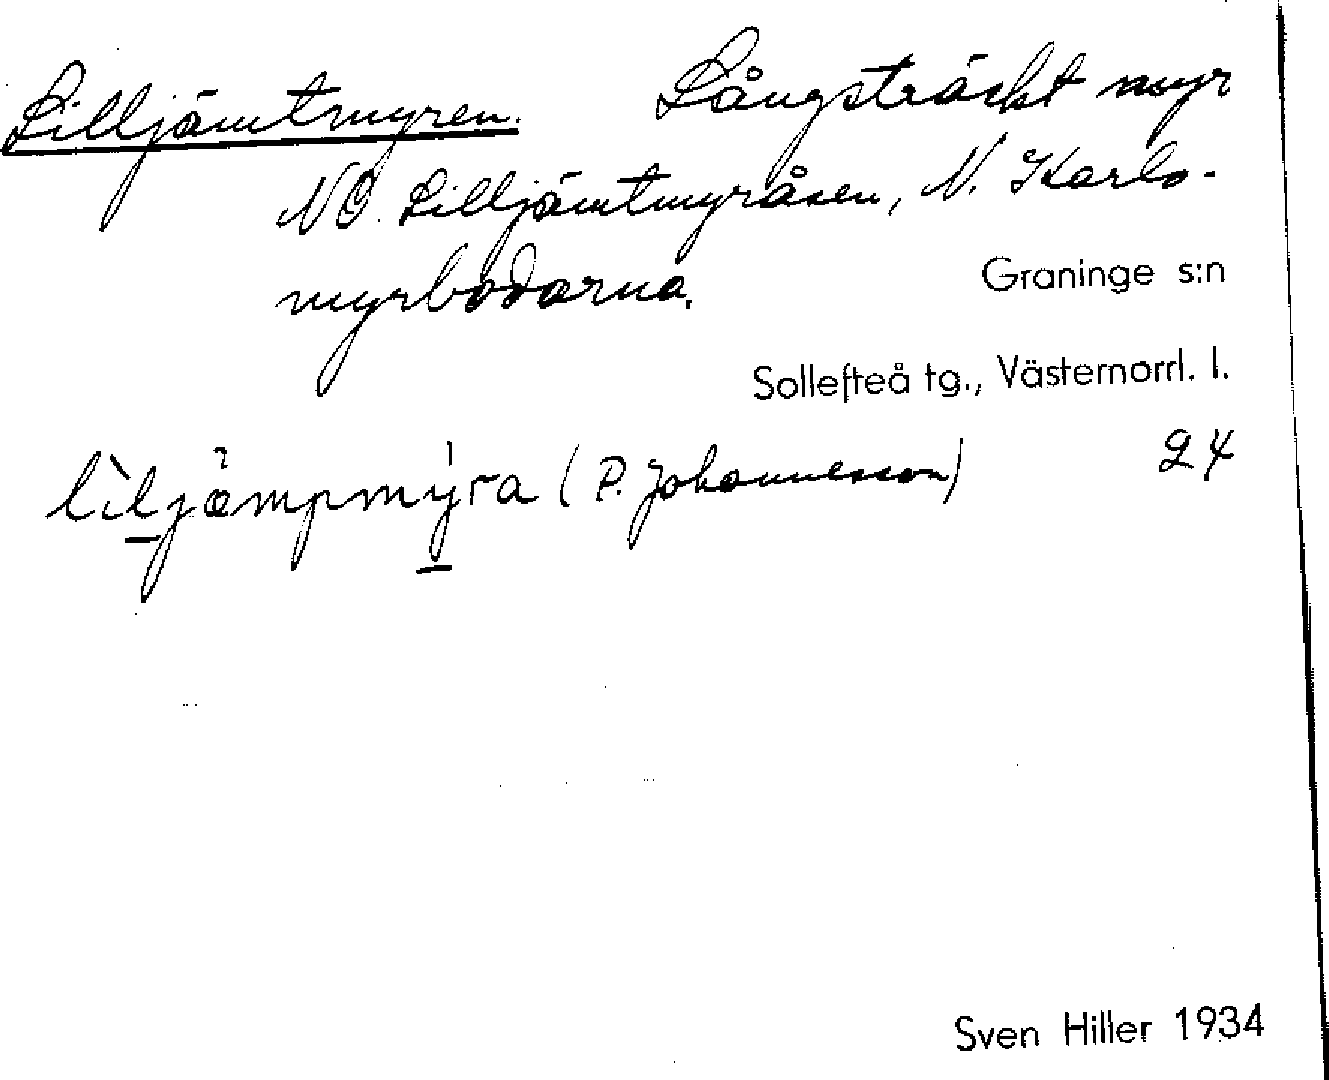 Lilljämtmyren. Långsträckt myr
NO. Lilljämtmyråsen, N. Karls-
myrbodarna.
Graninge s:n
Sollefteå tg., Västernorrl. l.
24
lìljämpmy̍ra (P. Johannesson)
Sven Hiller 1934